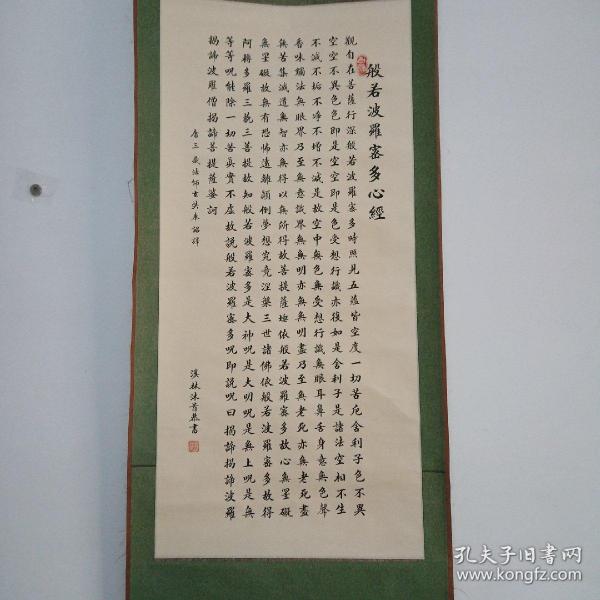 般若波羅蜜多心經
觀自在菩薩行深般若波羅蜜多時照見五蘊皆空度一切苦厄舍利子色不異
空空不異色色即是空空即是色受想行識亦復如是舍利子是諸法空相不生
不滅不垢不淨不增不減是故空中無色無受想行識無眼耳鼻舌身意無色聲
香味觸法無眼界乃至無意識界無無明亦無無明盡乃至無老死亦無老死盡
無苦集滅道無智亦無得以無所得故菩提薩埵依般若波羅蜜多故心無罣礙
無罣礙故無有恐怖遠離顛倒夢想究竟涅槃三世諸佛依般若波羅蜜多故得
阿耨多羅三藐三菩提故知般若波羅蜜多是大神咒是大明咒是無上咒是無
等等咒能除一切苦真實不虛故說般若波羅蜜多咒即說咒曰揭諦揭諦波羅
揭諦波羅僧揭諦菩提薩婆訶
唐三藏法師玄奘奉詔譯
漢林沐首恭書
孔夫子旧书网
www.kongfz.com